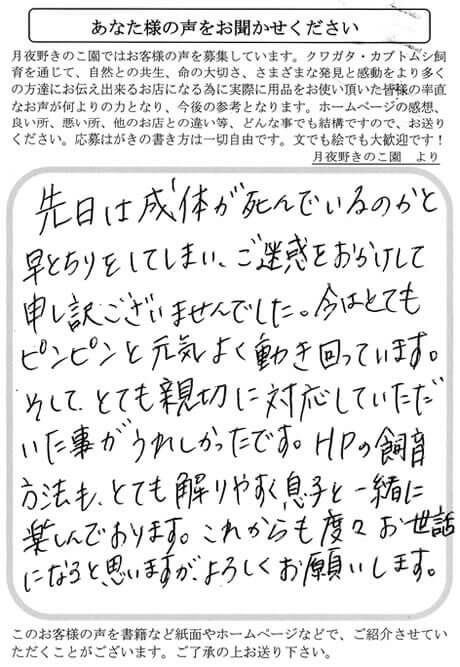 あなた様の声をお聞かせください
月夜野きのこ園ではお客様の声を募集しています。クワガタ・カブトムシ飼
育を通じて、自然との共生、命の大切さ、さまざまな発見と感動をより多く
の方達にお伝え出来るお店になる為に実際に用品をお使い頂いた皆様の率直
なお声が何よりの力となり、今後の参考となります。ホームページの感想、
良い所、悪い所、他のお店との違い等、どんな事でも結構ですので、お送り
ください。応募はがきの書き方は一切自由です。文でも絵でも大歓迎です！
月夜野きのこ園　より
先日は成体が死んでいるのかと
早とちりをしてしまい、ご迷惑をおかけして
申し訳ございませんでした。今はとても
ピンピンと元気よく動き回っています。
そして、とても親切に対応していただ
いた事がうれしかったです。HPの飼育
方法も、とても解りやすく息子と一緒に
楽しんでおります。これからも度々お世話
になると思いますが、よろしくお願いします。
このお客様の声を書籍など紙面やホームページなどで、ご紹介させてい
ただくことがございます。ご了承の上お送り下さい。